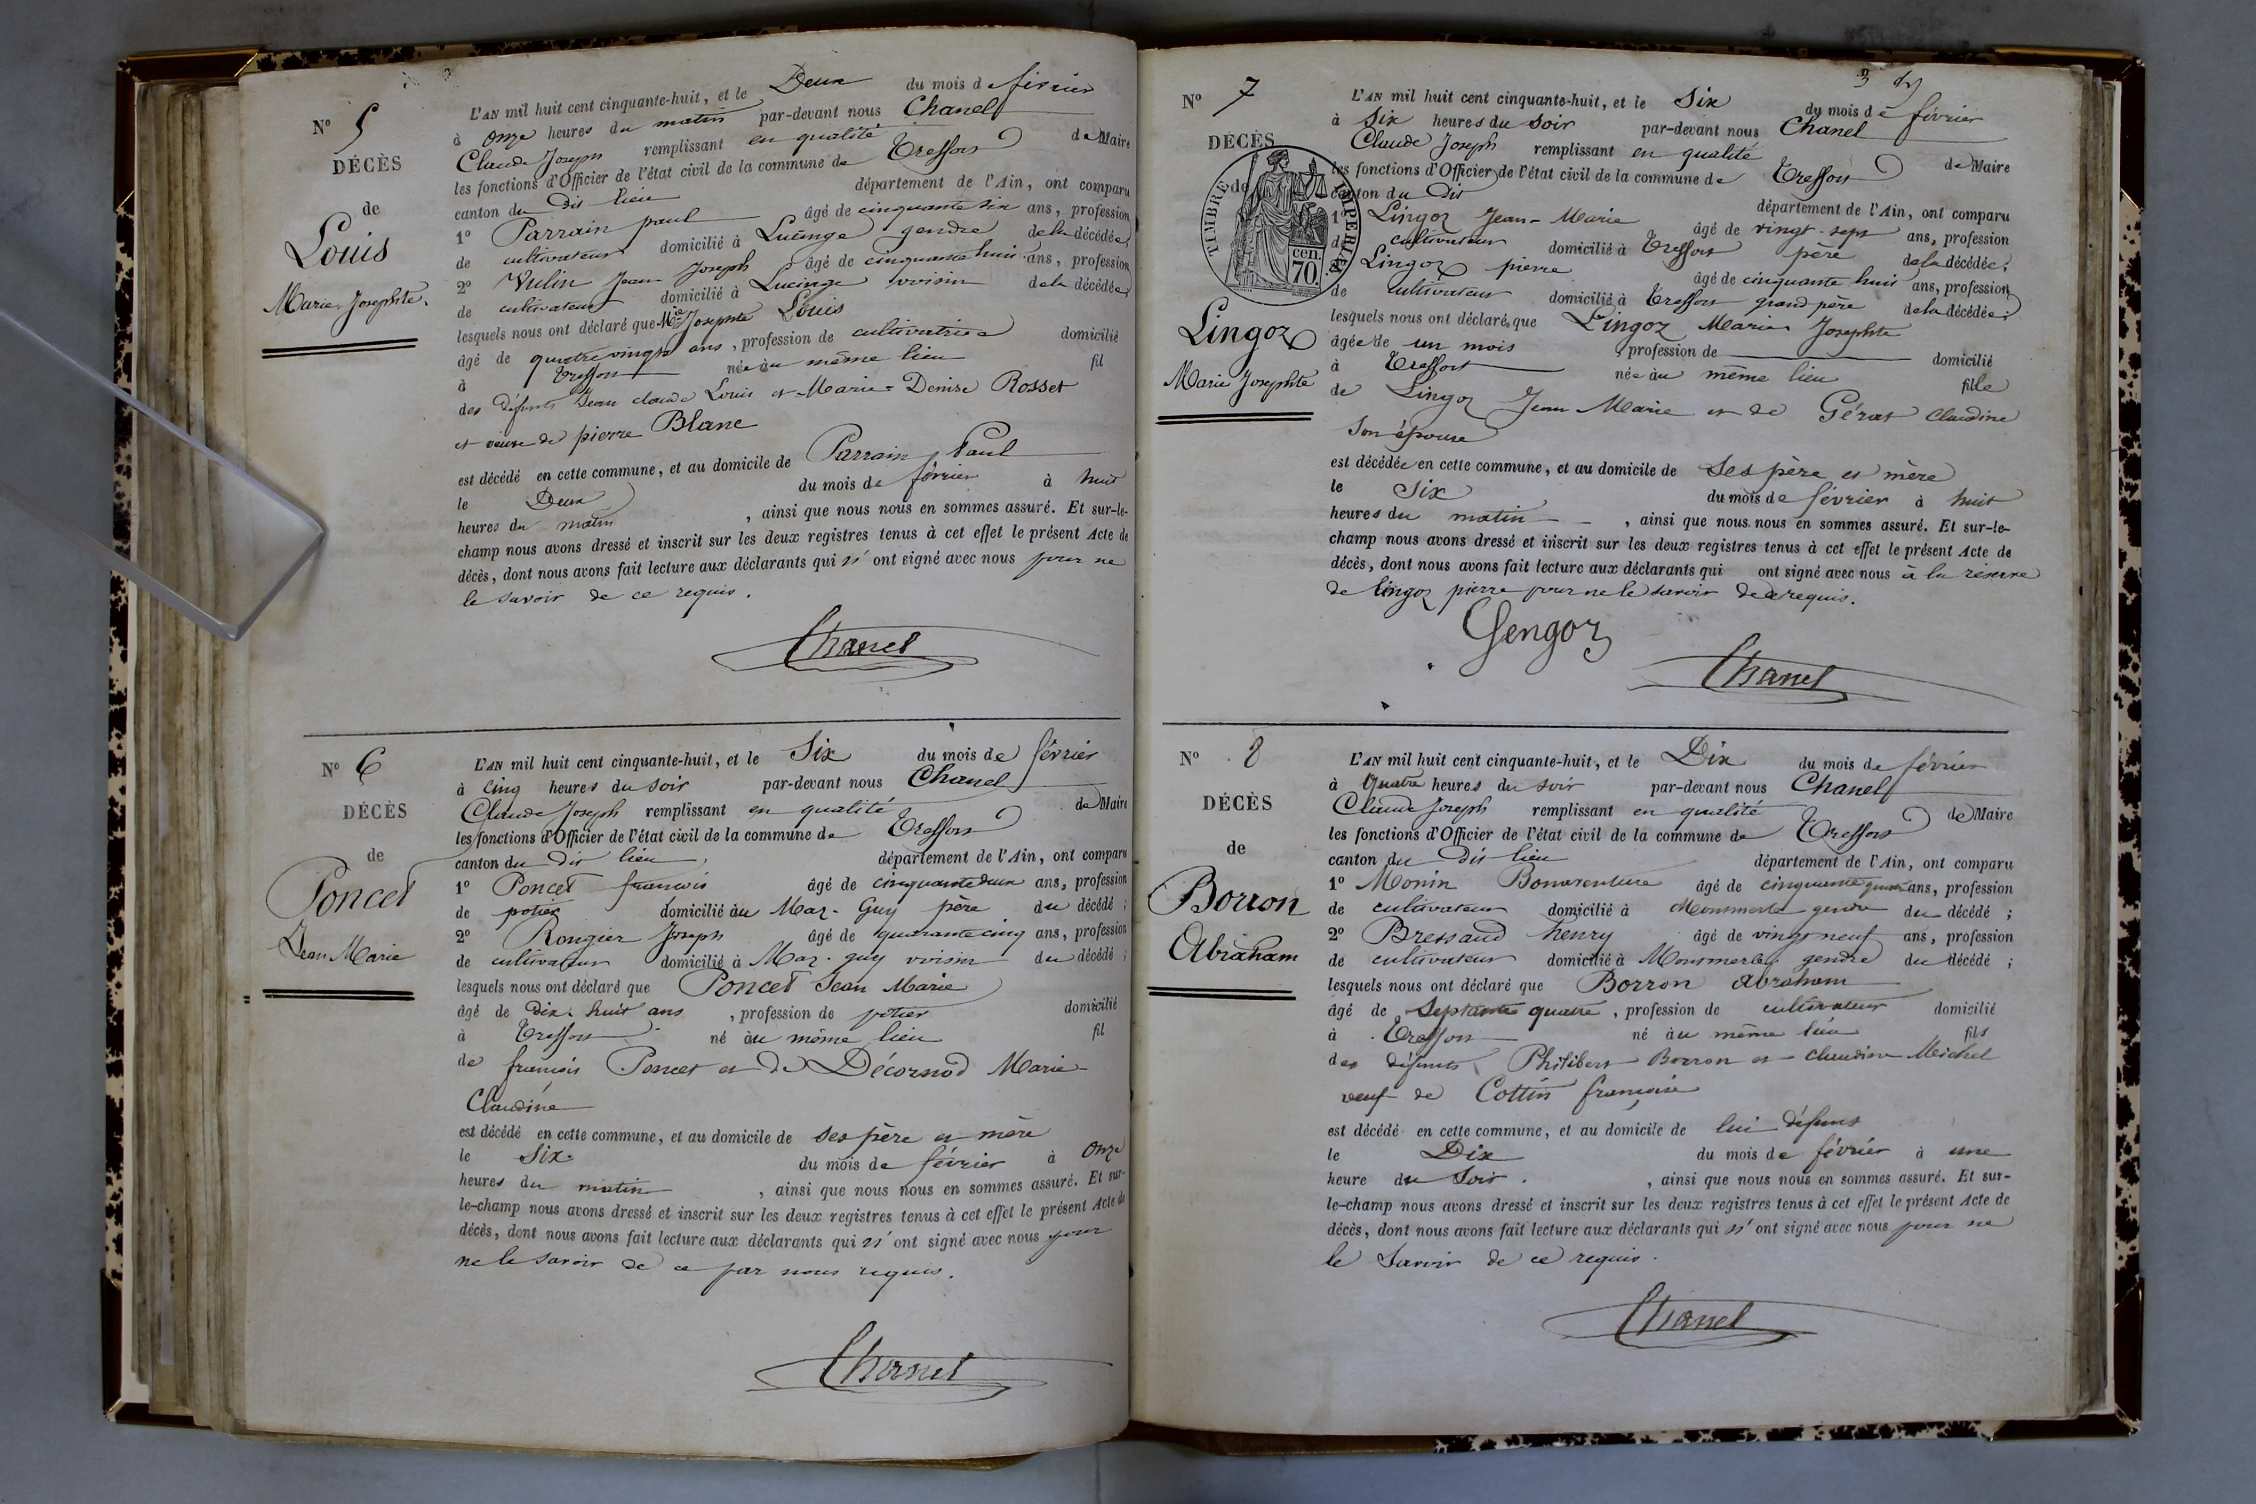 N° 5
DÉCÈS
de
Louis
Marie Josephte.
L'AN mil huit cent cinquante-huit, et le Deux du mois de février
à onze heures du matin par-devant nous Chanel
Claude Joseph remplissant en qualité de Maire
les fonctions d'Officier de l'état civil de la commune de Treffort
canton du dit lieu département de l'Ain, ont comparu
1° Parrain paul âgé de cinquante six ans, profession
de cultivateur domicilié à Lucinge gendre de la décédée;
2° Vulin Jean Joseph âgé de cinquante huit ans, profession
de cultivateur domicilié à Lucinge voisin de la décédée;
lesquels nous ont déclaré que Mie Josephte Louis
âgé de quatre vingts ans, profession de cultivatrice domicilié
à Treffort née au même lieu fil
des défunts Jean claude Louis et Marie-Denise Rosset
et veuve de pierre Blanc
est décédé en cette commune, et au domicile de Parrain Paul
le Deux du mois de février à huit
heures du matin, ainsi que nous nous en sommes assuré. Et sur-le-
champ nous avons dressé et inscrit sur les deux registres tenus à cet effet le présent Acte de
décès, dont nous avons fait lecture aux déclarants qui n'ont signé avec nous pour ne
le savoir de ce requis.
Chanel
N° 6
DÉCÈS
de
Poncet
Jean Marie
L'AN mil huit cent cinquante-huit, et le Six du mois de février
à cinq heures du soir par-devant nous Chanel
Claude Joseph remplissant en qualité de Maire
les fonctions d'Officier de l'état civil de la commune de Treffort
canton du dit lieu, département de l'Ain, ont comparu
1° Poncet francois âgé de cinquante deux ans, profession
de potier domicilié au Maz-Guy père du décédé;
2° Rongier Joseph âgé de quarante cinq ans, profession
de cultivateur domicilié à Maz-guy voisin du décédé;
lesquels nous ont déclaré que Poncet Jean Marie
âgé de Dix-huit ans, profession de potier domicilié
à Treffort né au même lieu fil
de francois Poncet et de Décornod Marie-
Claudine
est décédé en cette commune, et au domicile de ses père et mère
le Six du mois de février à onze
heures du matin, ainsi que nous nous en sommes assuré. Et sur-
le-champ nous avons dressé et inscrit sur les deux registres tenus à cet effet le présent Acte de
décès, dont nous avons fait lecture aux déclarants qui n'ont signé avec nous pour
ne le savoir de ce par nous requis.
Chanel
3
N° 7
DÉCÈS
de
TIMBRE IMPÉRIAL
70 cen.
Lingoz
Marie Josephte
L'AN mil huit cent cinquante-huit, et le Six du mois de février
à Six heures du soir par-devant nous Chanel
Claude Joseph remplissant en qualité de Maire
les fonctions d'Officier de l'état civil de la commune de Treffort
canton du Dit département de l'Ain, ont comparu
1° Lingoz Jean-Marie âgé de vingt-sept ans, profession
de cultivateur domicilié à Treffort père de la décédée;
Lingoz pierre âgé de cinquante huit ans, profession
de cultivateur domicilié à Treffort grand père de la décédée;
lesquels nous ont déclaré que Lingoz Marie Josephte
âgée de un mois, profession de domicilié
à Treffort née au même lieu fille
de Lingoz Jean Marie et de Gérat Claudine
son épouse
est décédée en cette commune, et au domicile de ses père et mère
le Six du mois de février à huit
heures du matin, ainsi que nous nous en sommes assuré. Et sur-le-
champ nous avons dressé et inscrit sur les deux registres tenus à cet effet le présent Acte de
décès, dont nous avons fait lecture aux déclarants qui ont signé avec nous à la réserve
de lingoz pierre pour ne le savoir de ce requis.
Gengoz
Chanel
N° 8
DÉCÈS
de
Borron
Abraham
L'AN mil huit cent cinquante-huit, et le Dix du mois de février
à Quatre heures du soir par-devant nous Chanel
Claude Joseph remplissant en qualité de Maire
les fonctions d'Officier de l'état civil de la commune de Treffort
canton du dit lieu département de l'Ain, ont comparu
1° Monin Bonaventure âgé de cinquante quatre ans, profession
de cultivateur domicilié à Montmerle gendre du décédé;
2° Bressaud henry âgé de vingt neuf ans, profession
de cultivateur domicilié à Montmerle gendre du décédé;
lesquels nous ont déclaré que Borron abraham
âgé de Septante quatre, profession de cultivateur domicilié
à Treffort né au même lieu fils
des défunts Philibert Borron et claudine Michel
veuf de Cottin francoise
est décédé en cette commune, et au domicile de lui défunt
le Dix du mois de février à une
heure du Soir, ainsi que nous nous en sommes assuré. Et sur-
le-champ nous avons dressé et inscrit sur les deux registres tenus à cet effet le présent Acte de
décès, dont nous avons fait lecture aux déclarants qui n'ont signé avec nous pour ne
le Savoir de ce requis.
Chanel